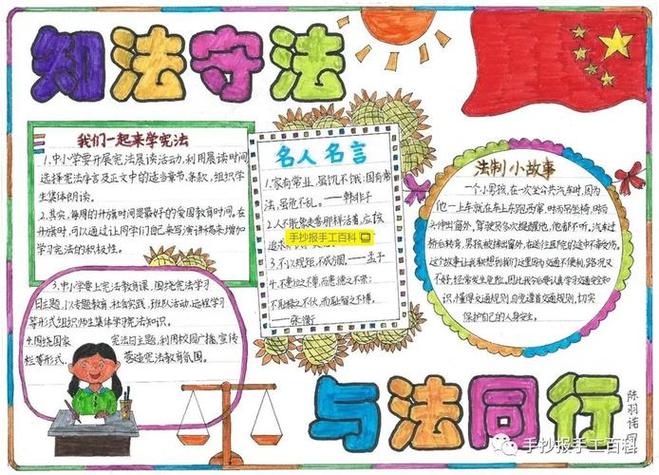 知法守法
我们一起来学宪法
1.中小学要开展宪法晨读活动,利用晨读时间
选择宪法序言及正文中的适当章节、条款,组织学
生集体朗读。
2.其实,每周的升旗时间是最好的爱国教育时间。在
升旗时,可以通过让同学们自己来写演讲稿来增加
学习宪法的积极性。
3.中小学要上宪法教育课,围绕宪法学习
日主题,以专题教育、社会实践、班队活动、远程学习
等形式组织师生集体学习宪法知识。
4.围绕国家 宪法日主题,利用校园广播、宣传
栏等形式, 营造宪法教育氛围。
名人名言
1.家有常业,虽饥不饿;国有常
法,虽危不乱。——韩非子
2.人不能像走兽那样活着,应该
追求
手抄报手工百科
3.不以规矩,不成方圆。——孟子
4.不患位之不尊,而患德之不崇;
不耻禄之不伙,而耻智之不博。
——张衡
法制小故事
一个小男孩,在一次坐公共汽车时,因为
他一上车就在车上东跑西窜,时而吊坐椅,时而
头伸出窗外,驾驶员多次提醒他,他都不听,汽车过
桥台转弯,男孩被摔出窗外,在送往医院的途中不幸身伤。
这个故事让我联想到我们这里因为交通不便利,路况又
不好,经常发生危险。因此我今后要认真学习交通安全知
识,懂得交通规则,自觉遵守交通规则,切实
保护自己的人身安全。
与法同行
陈羽诺
手抄报手工百科